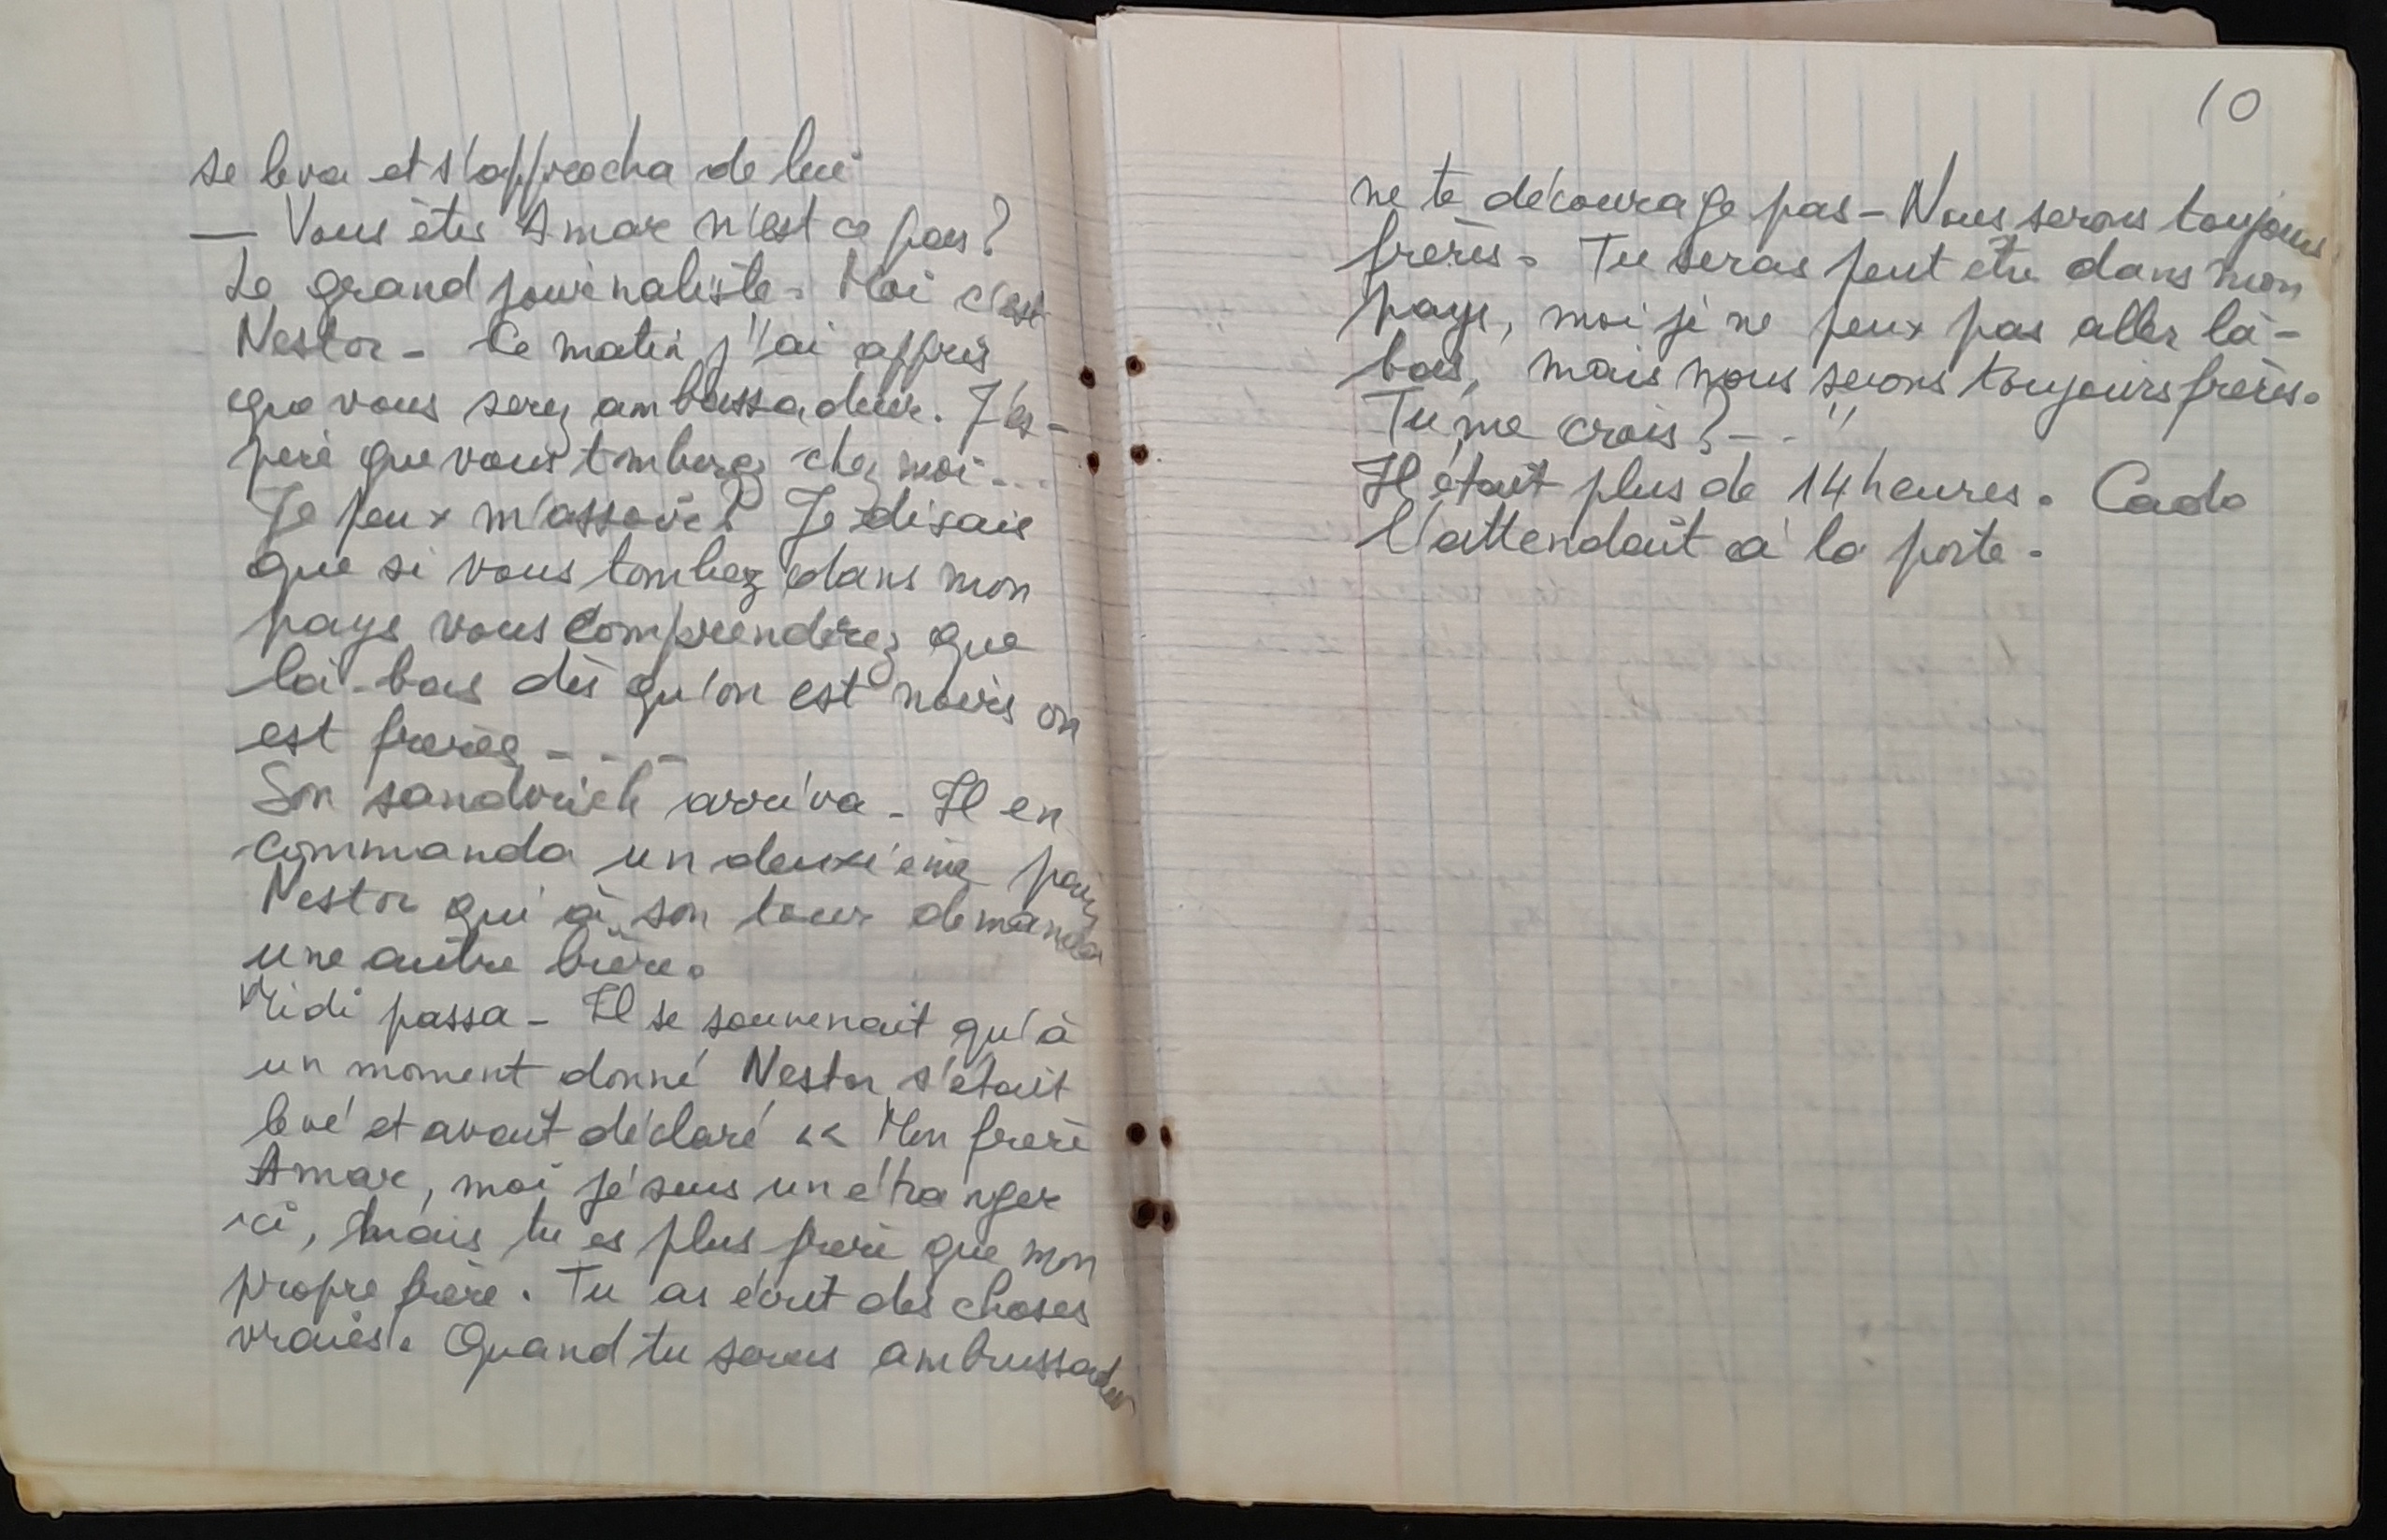 se leva et s'approcha de lui
— Vous êtes Amar n'est ce pas?
Le grand journaliste. Moi c'est
Nestor - Ce matin j'ai appris
que vous serez ambassadeur. J'es-
père que vous tomberez chez moi...
Je peux m'asseoir? Je disais
que si vous tombez dans mon
pays vous comprendrez que
là-bas dès qu'on est noirs on
est frères - - - -
Son sandwich arriva - Il en
commanda un deuxième pour
Nestor qui à son tour demanda
une autre bière.
Midi passa - Il se souvenait qu'à
un moment donné Nestor s'était
levé et avait déclaré << Mon frère
Amar, moi je suis un étranger
ici, mais tu es plus frère que mon
propre frère. Tu as écrit des choses
vraies. Quand tu seras ambassadeur
10
ne te décourage pas - Nous serons toujours
frères. Tu seras peut être dans mon
pays, moi je ne peux pas aller là-
bas, mais nous serons toujours frères.
Tu me crois? - - "
Il était plus de 14 heures. Cado
l'attendait à la porte.